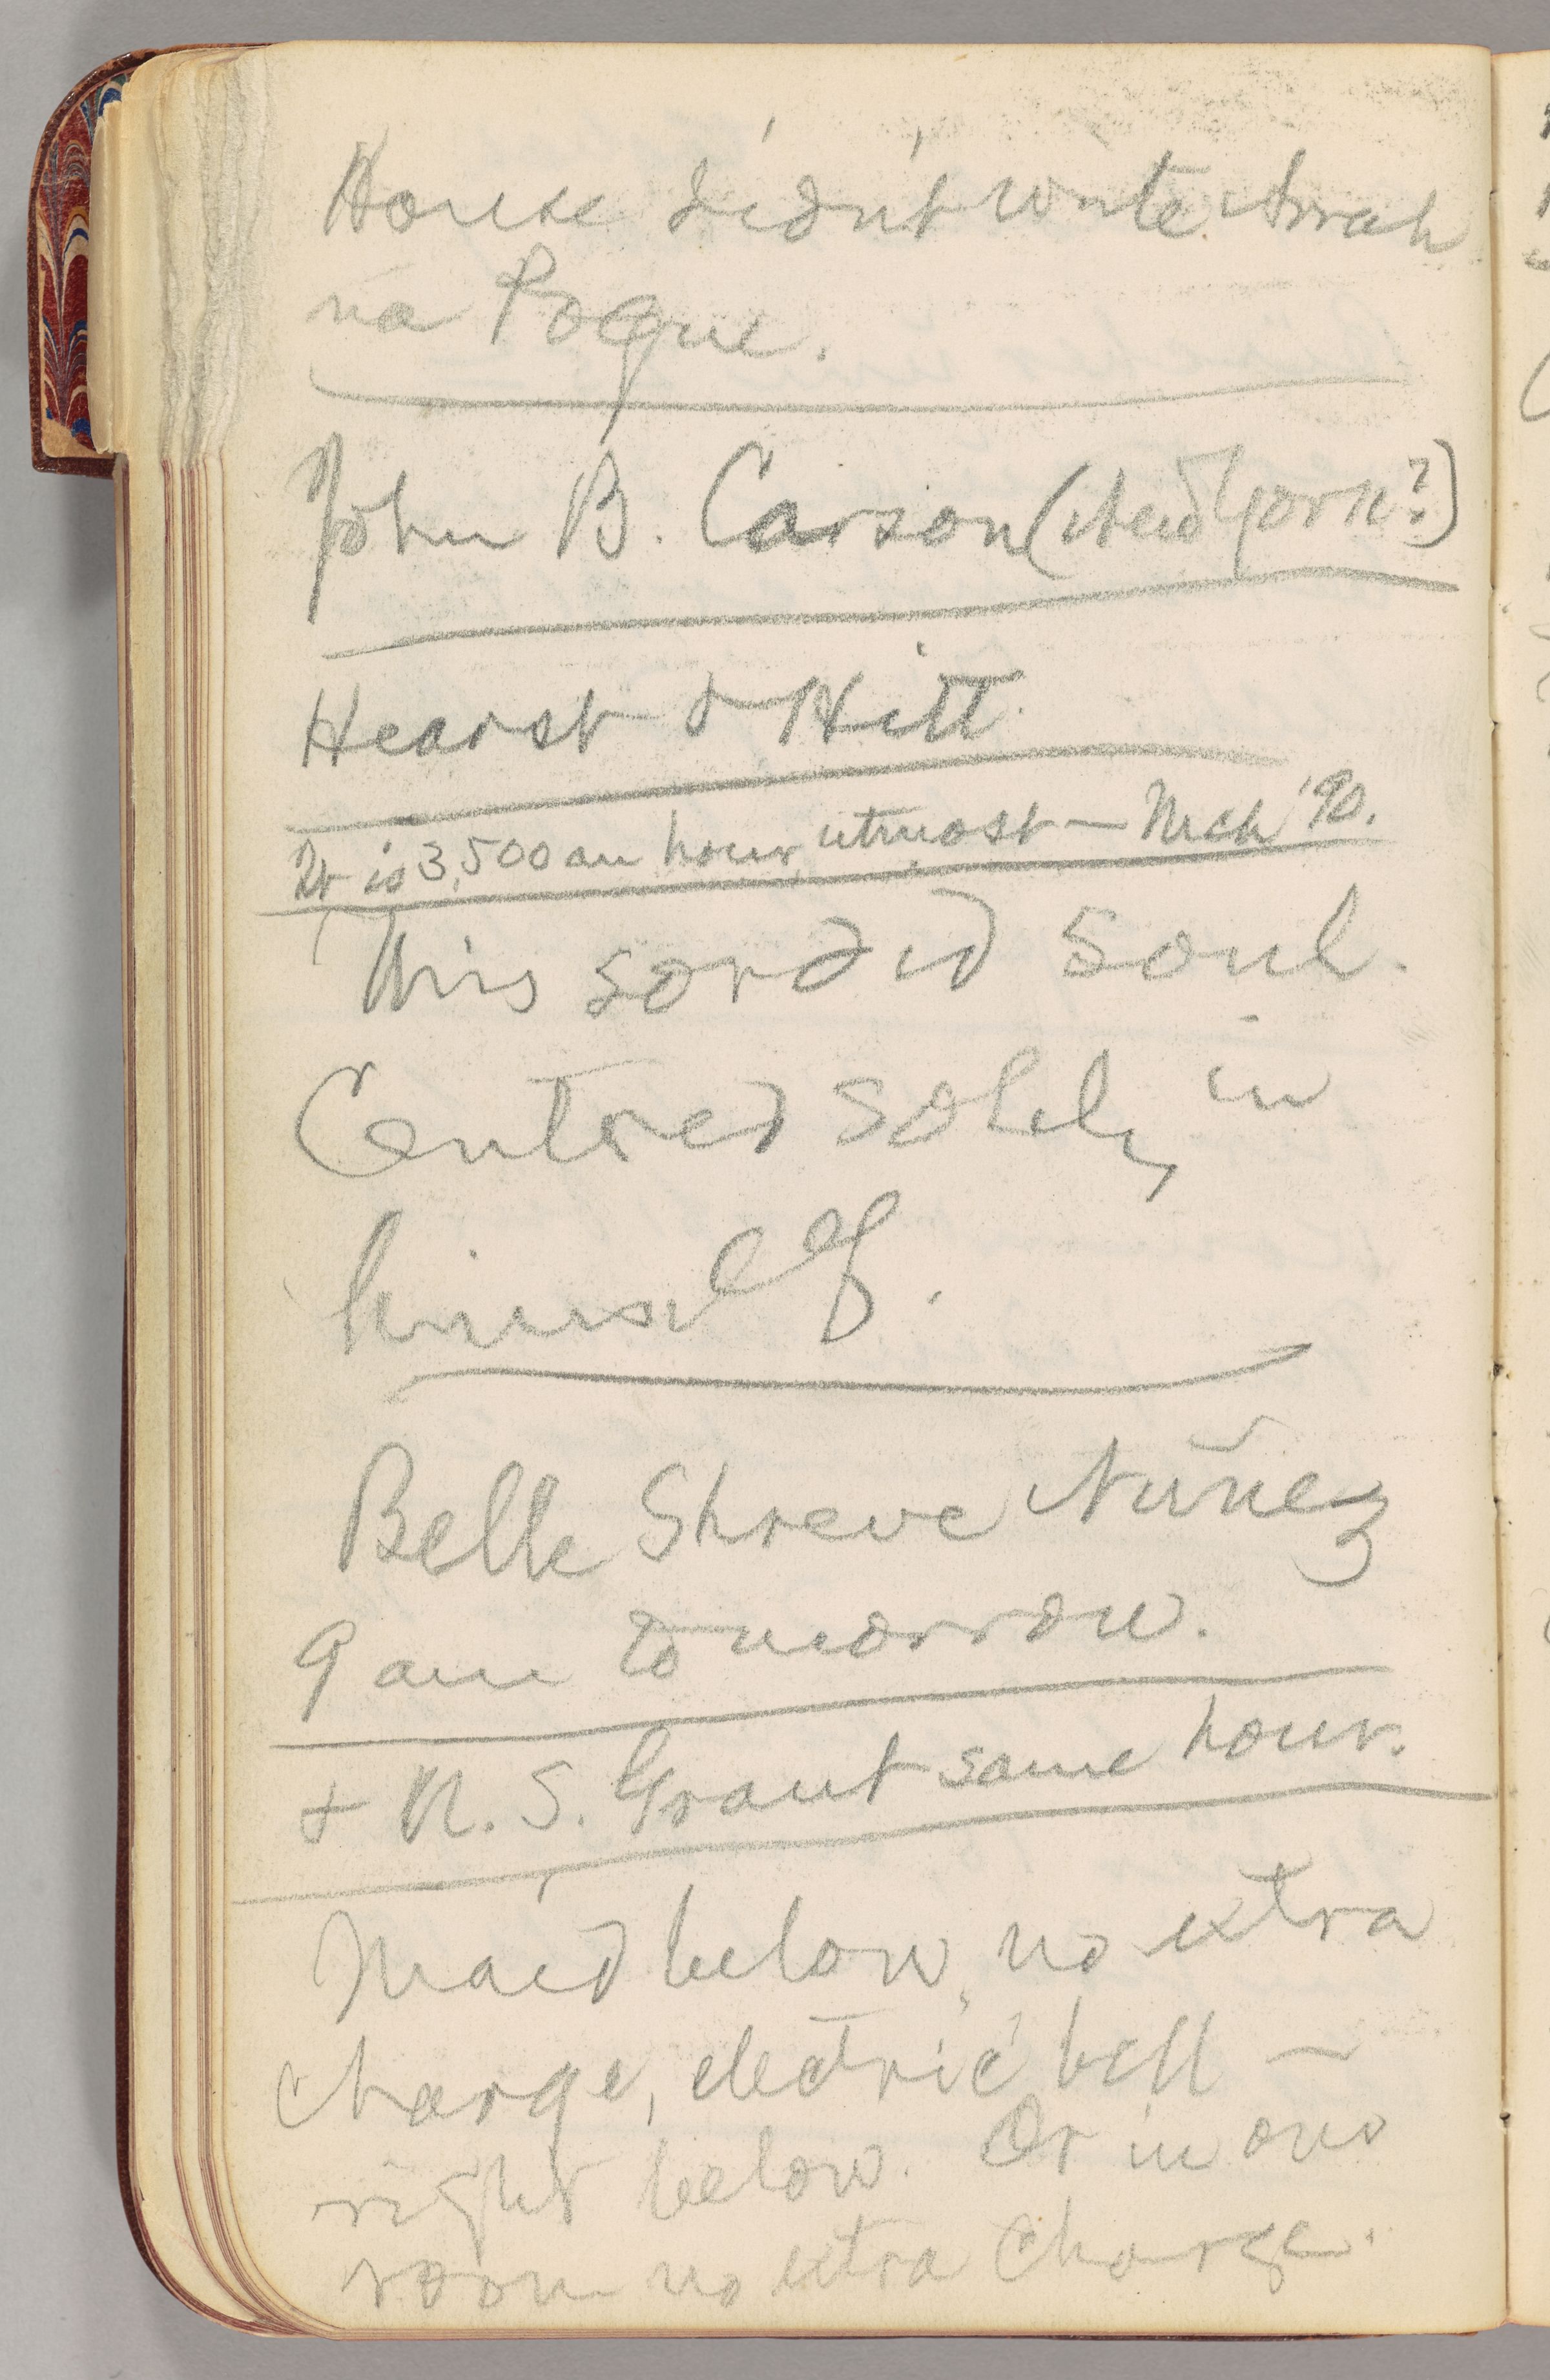 House didn't write Arrah
na Pogue.
John B. Carson (New York?)
Hearst & Hitt.
It is 3,500 an hour, utmost — Mch '90.
This sordid soul.
Centred solely in
himself.
Belle Shreve Nuñez
9 am tomorrow.
+ N. S. Grant same hour.
Maid below, no extra
charge, electric bell —
right below. Or in our
room no extra charge.